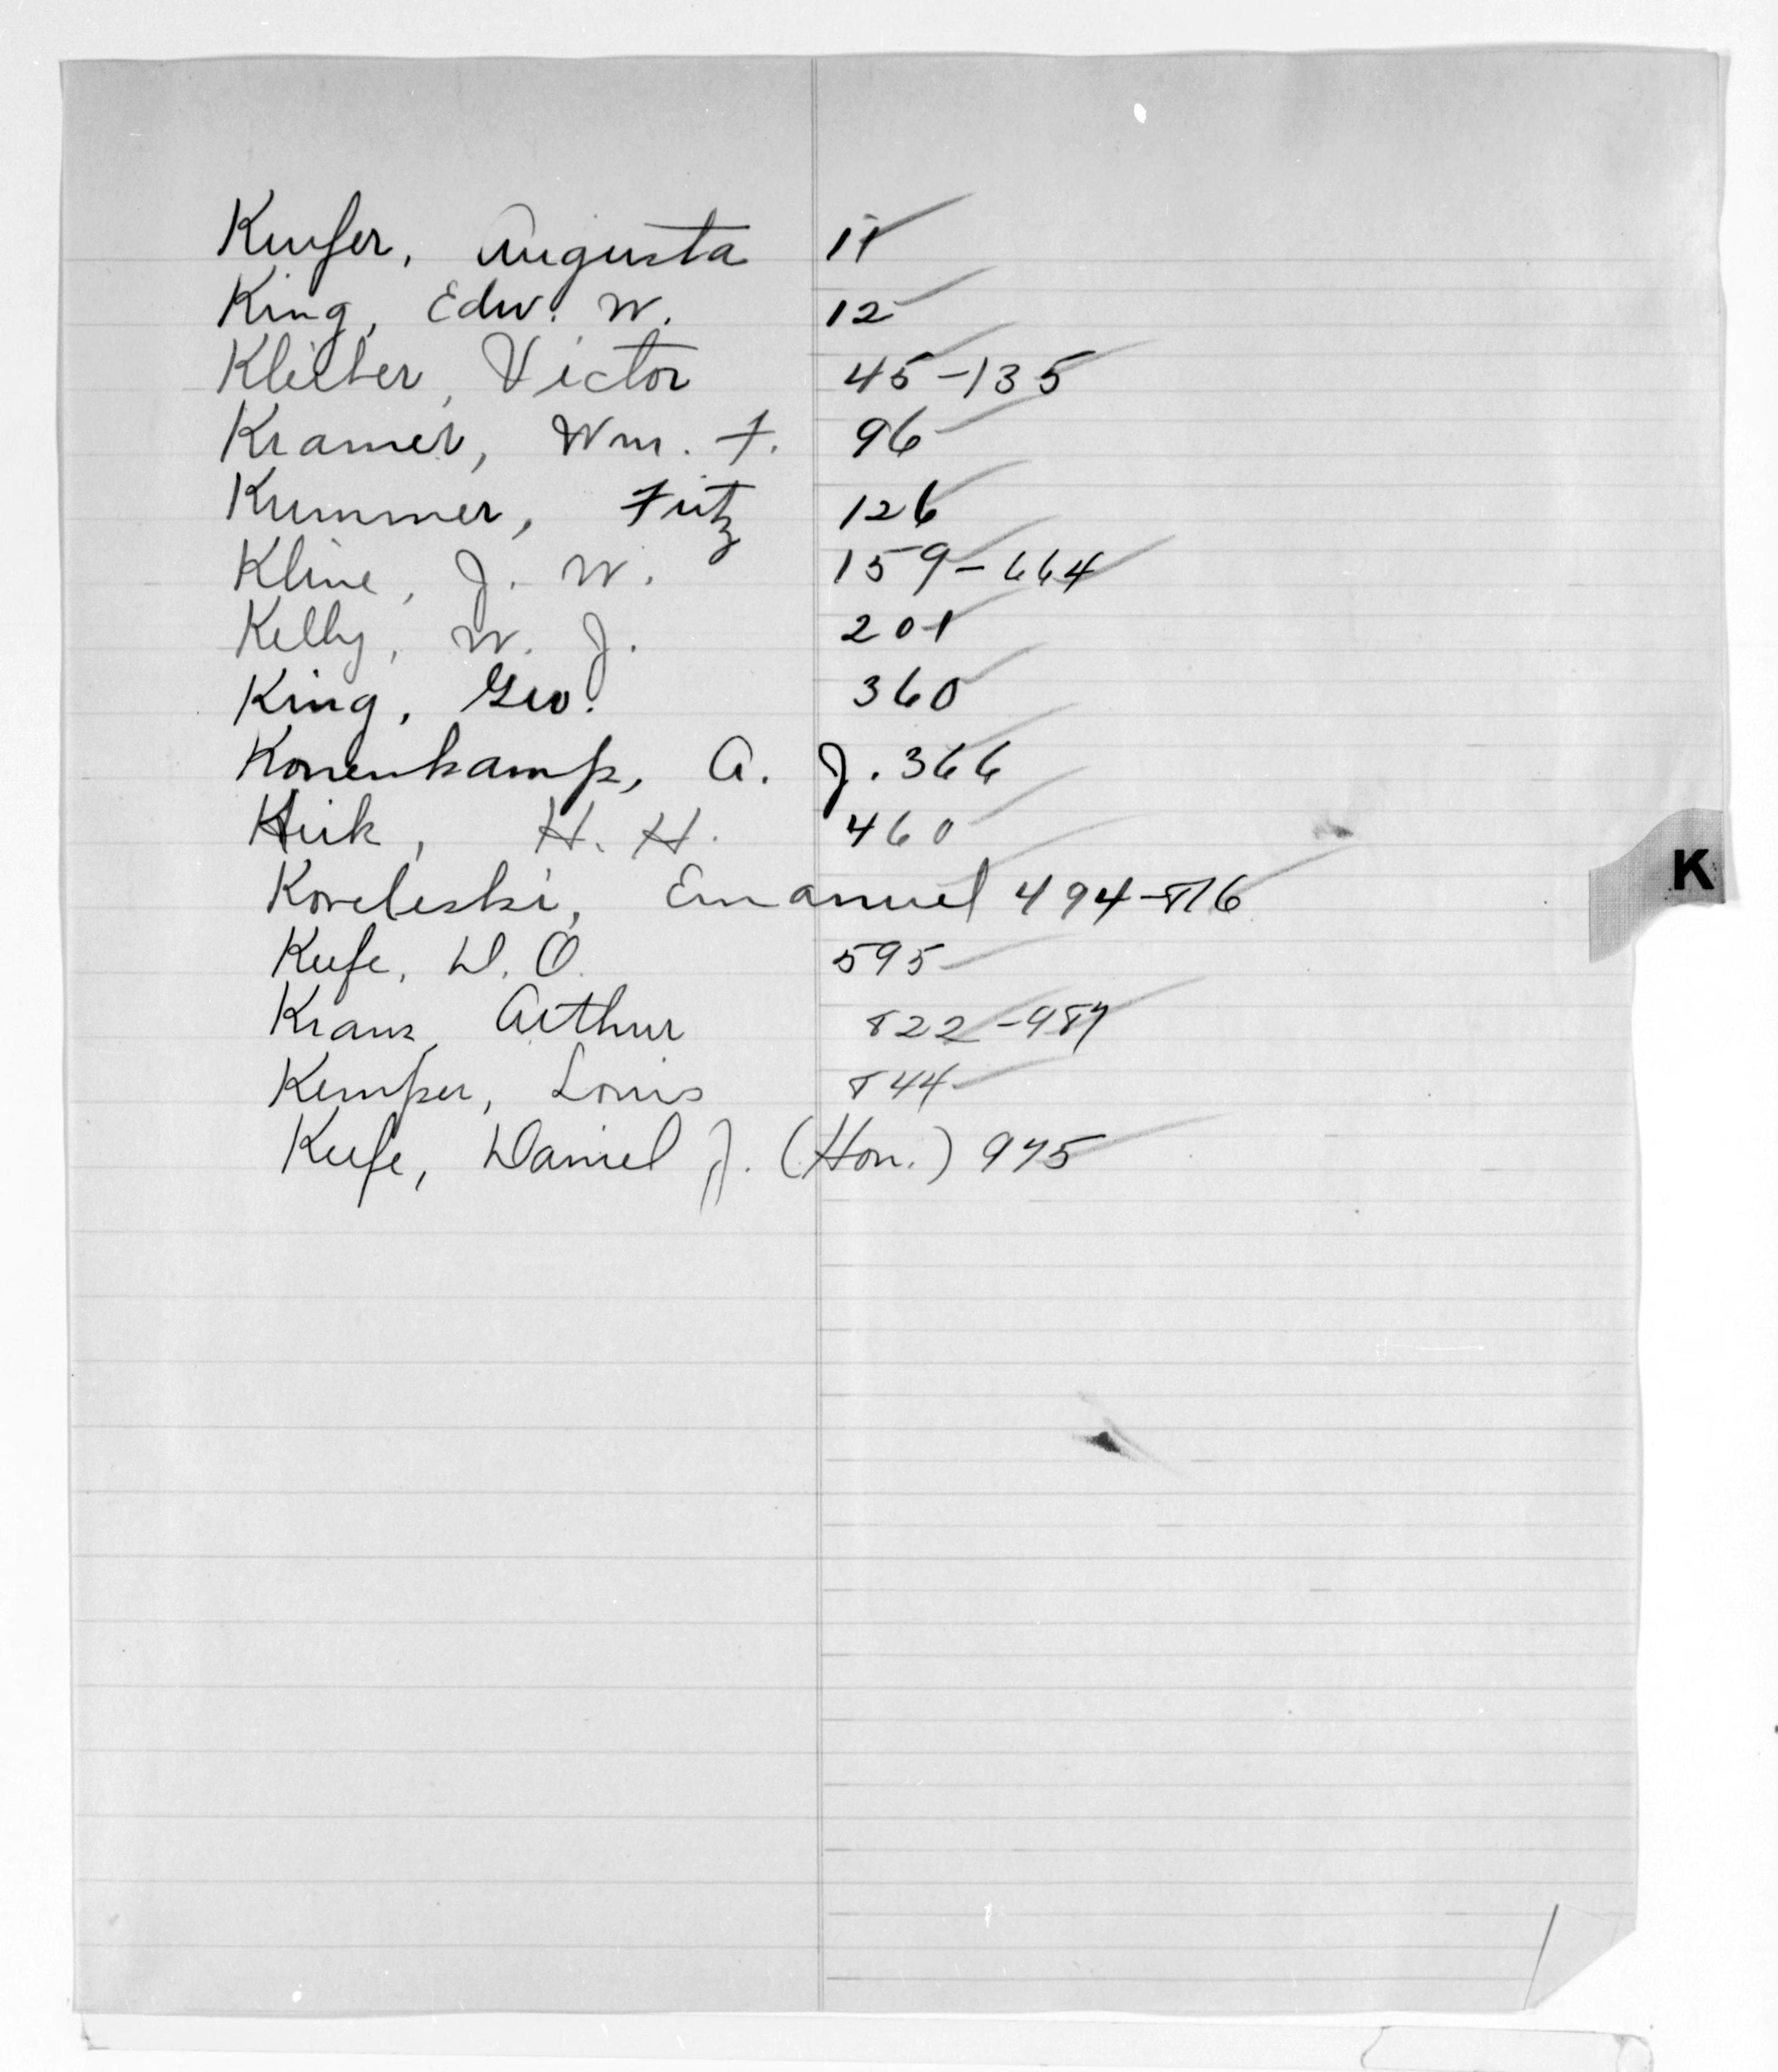 Kuufer, Augusta 11
King, Edw. W. 12
Kleiber, Victor 45-135
Kramer, Wm. F. 96
Kummer, Fritz 126
Kline, J. W. 159-664
Kelly, W. J. 201
King, Geo. 360
Konenkamp, A. J. 366
Kirk, H. H. 460
Koveleski, Emanuel 494-816
K
Keefe, D. O. 595
Kranz, Arthur 822-987
Kemper, Louis 844
Keefe, Daniel J. (Hon.) 975